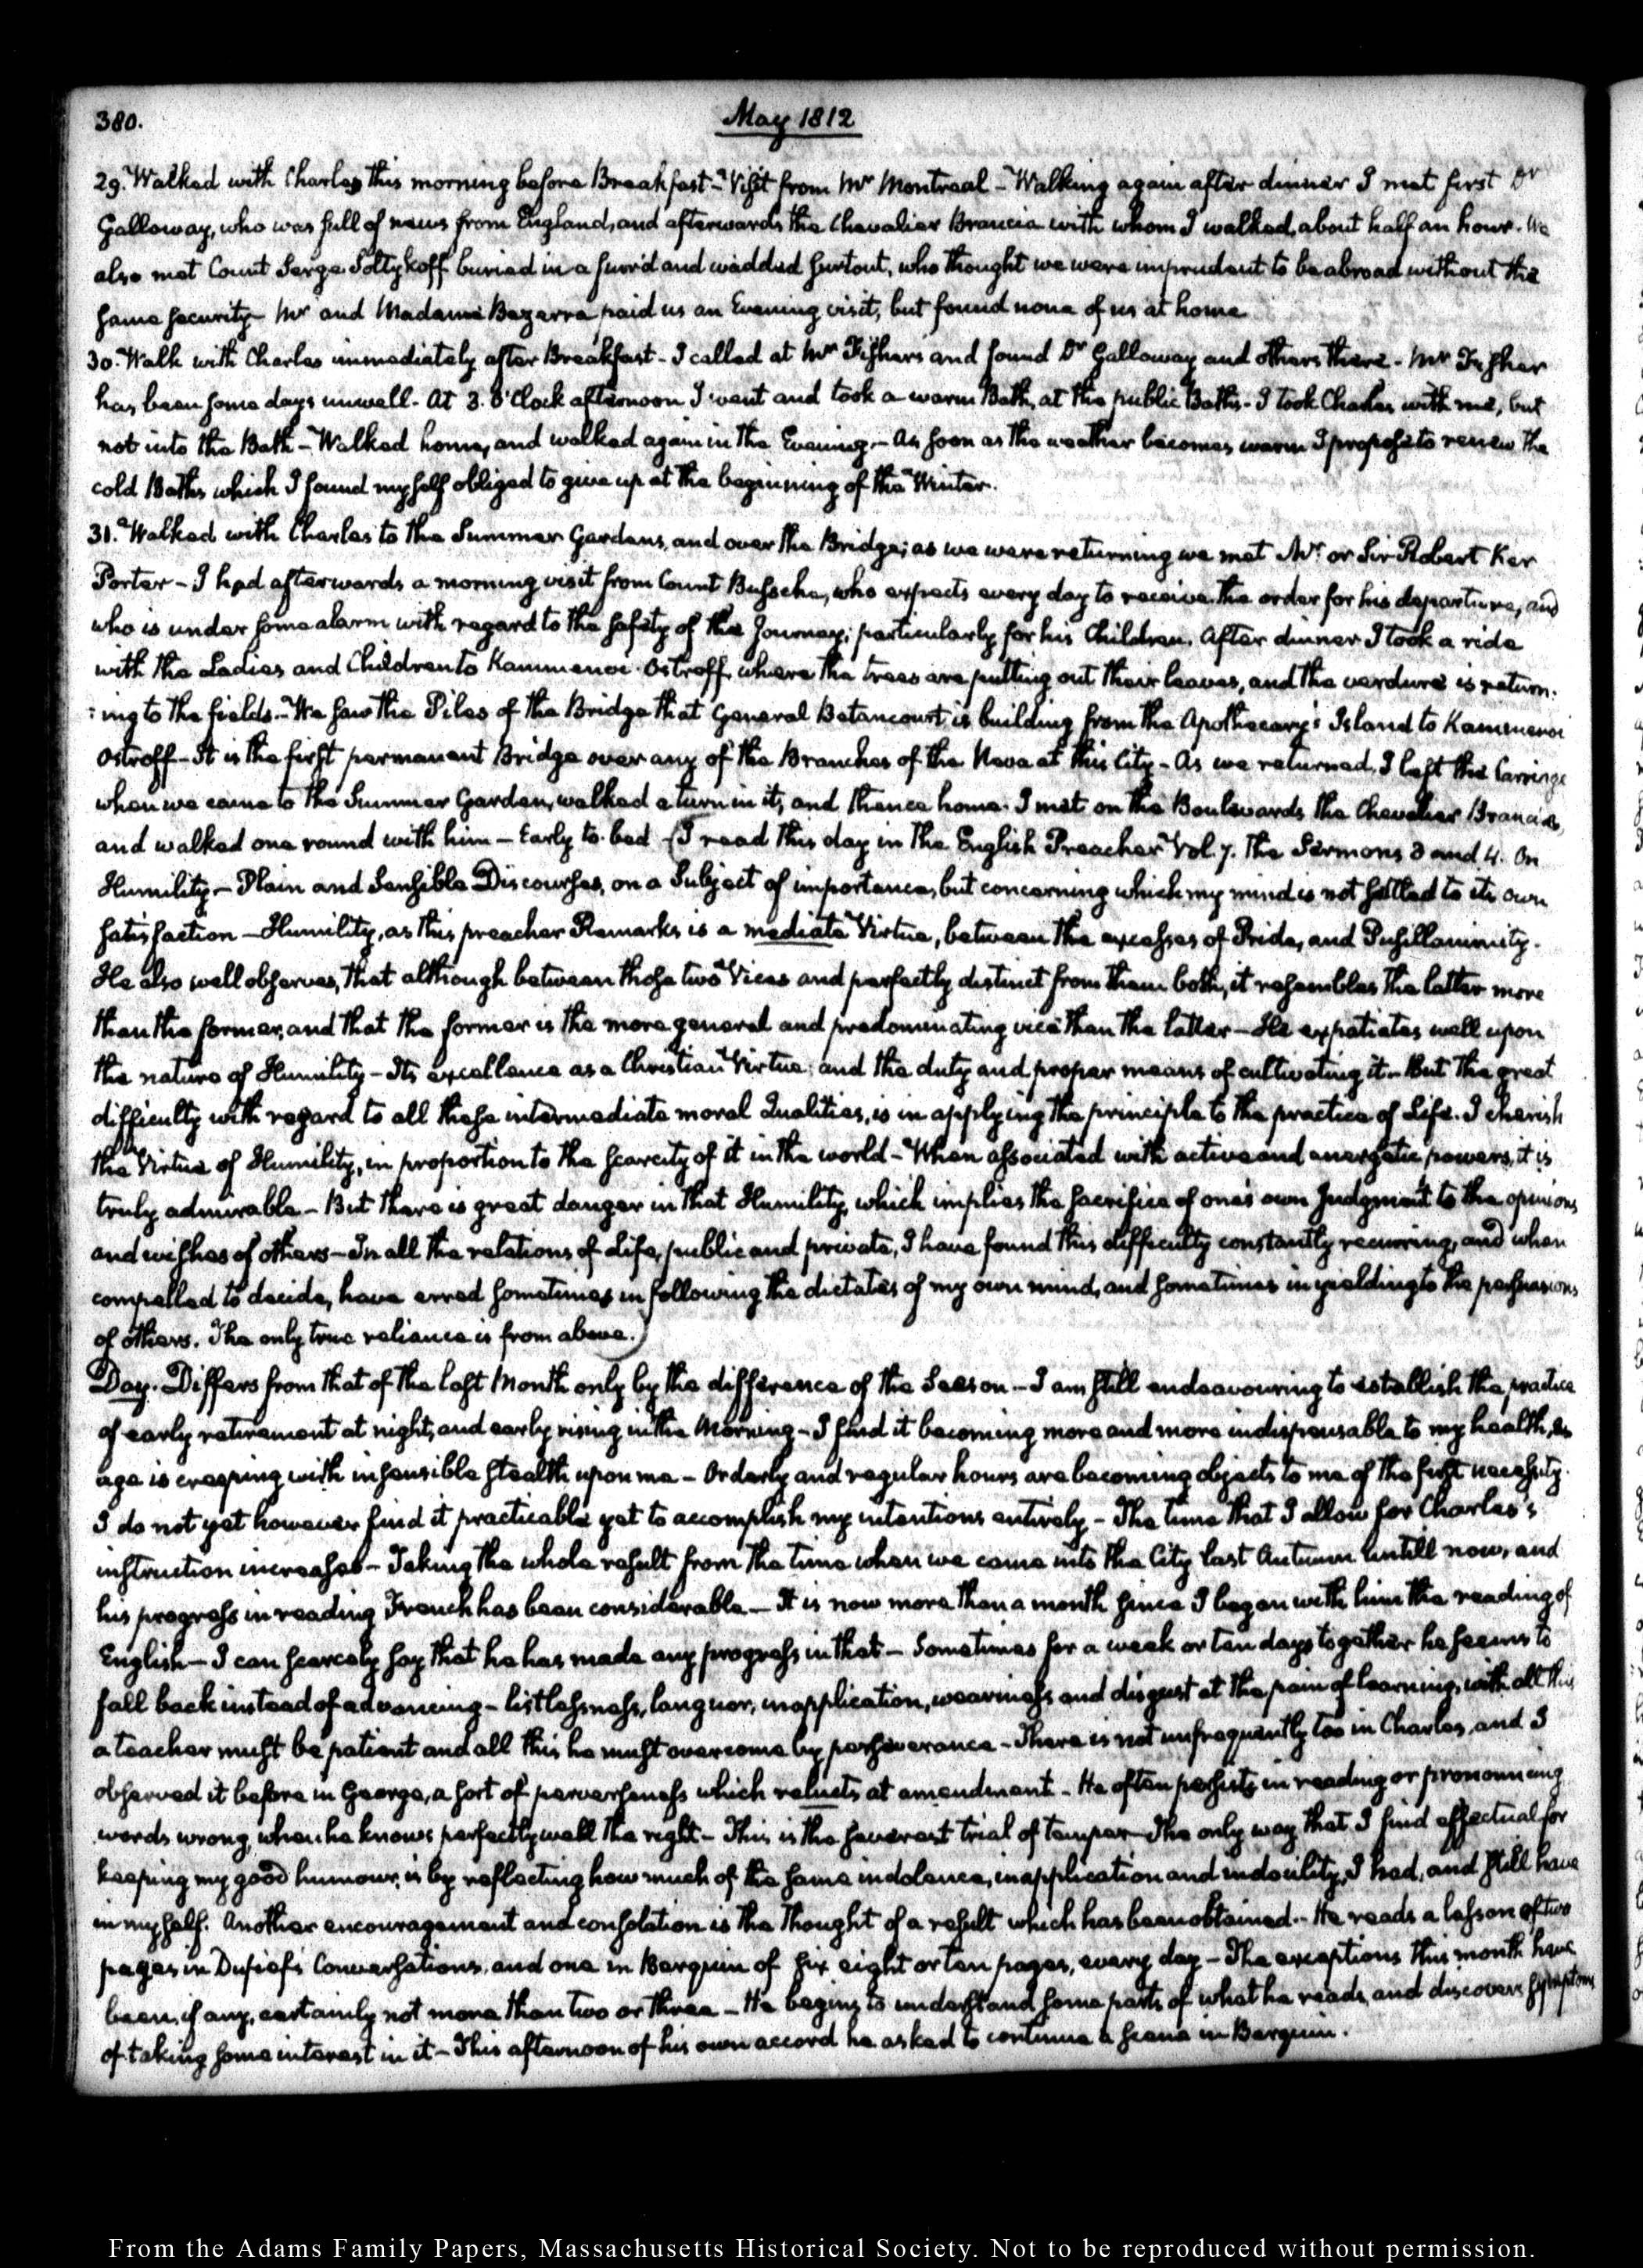 380.
May 1812
29. Walked with Charles this morning before Breakfast – Visit from Mr Montreal – Walking again after dinner I met first Dr
Galloway, who was full of news from England, and afterwards the Chevalier Brancia with whom I walked, about half an hour. We
also met Count Serge Soltykoff buried in a furr'd and wadded surtout, who thought we were imprudent to be abroad without the
same security – Mr and Madame Bezerra paid us an Evening visit, but found none of us at home
30. Walk with Charles immediately after Breakfast – I called at Mr Fisher's and found Dr Galloway and others there – Mr Fisher
has been some days unwell – At 3. O'Clock afternoon I went and took a warm Bath, at the public Baths – I took Charles with me, but
not into the Bath – Walked home, and walked again in the Evening. – As soon as the weather becomes warm I propose to renew the
cold Baths which I found myself obliged to give up at the beginning of the Winter.
31. Walked with Charles to the Summer Gardens, and over the Bridge; as we were returning we met Mr. or Sir Robert Ker
Porter – I had afterwards a morning visit from Count Bussche, who expects every day to receive the order for his departure, and
who is under some alarm with regard to the safety of the Journey; particularly for his Children. After dinner I took a ride
with the Ladies and Children to Kammenoi-Ostroff, where the trees are putting out their leaves, and the verdure is return:
:ing to the fields. – We saw the Piles of the Bridge that General Betancourt is building from the Apothecary's Island to Kammenoi
Ostroff – It is the first permanent Bridge over any of the Branches of the Neva at this City – As we returned, I left the Carriage
when we came to the Summer Garden, walked a turn in it, and thence home. I met on the Boulevards the Chevalier Brancia,
and walked one round with him – Early to bed – (I read this day in the English Preacher Vol. 7. The Sermons 3 and 4. On
Humility – Plain and Sensible Discourses, on a Subject of importance, but concerning which my mind is not settled to its own
satisfaction – Humility, as this preacher Remarks is a mediate Virtue, between the excesses of Pride, and Pusillanimity.
He also well observes, that although between those two Vices and perfectly distinct from them both, it resembles the latter more
than the former, and that the former is the more general and predominating vice than the latter – He expatiates well upon
the nature of Humility – Its excellence as a Christian Virtue; and the duty and proper means of cultivating it – But the great
difficulty with regard to all these intermediate moral Qualities, is in applying the principle to the practice of Life. I cherish
the Virtue of Humility, in proportion to the scarcity of it in the world – When associated with active and energetic powers, it is
truly admirable – But there is great danger in that Humility, which implies the sacrifice of one's own Judgment to the opinions
and wishes of others – In all the relations of Life, public and private, I have found this difficulty constantly recurring, and when
compelled to decide, have erred sometimes in following the dictates of my own mind, and sometimes in yielding to the persuasions
of others. The only true reliance is from above.)
Day. Differs from that of the last Month only by the difference of the Season – I am still endeavouring to establish the practice
of early retirement at night, and early rising in the Morning – I find it becoming more and more indispensable to my health, as
age is creeping with insensible stealth upon me – Orderly and regular hours are becoming objects to me of the first necessity.
I do not yet however find it practicable yet to accomplish my intentions entirely – The time that I allow for Charles's
instruction increases – Taking the whole result from the time when we came into the City last Autumn untill now, and
his progress in reading French has been considerable – It is now more than a month since I began with him the reading of
English – I can scarcely say that he has made any progress in that – Sometimes for a week or ten days together he seems to
fall back instead of advancing – listlessness, languor, inapplication, weariness and disgust at the pain of learning, with all this
a teacher must be patient and all this he must overcome by perseverance – There is not unfrequently too in Charles, and I
observed it before in George, a sort of perverseness which relucts at amendment – He often persists in reading or pronouncing
words wrong, when he knows perfectly well the right – This is the severest trial of temper – The only way that I find effectual for
keeping my good humour, is by reflecting how much of the same indolence, inapplication and indocility, I had, and still have
in myself. Another encouragement and consolation is the thought of a result which has been obtained. – He reads a lesson of two
pages in Dufief's Conversations, and one in Berquin of six eight or ten pages, every day – The exceptions this month have
been, if any, certainly not more than two or three – He begins to understand some parts of what he reads, and discovers symptoms
of taking some interest in it – This afternoon of his own accord he asked to continue a scene in Berquin.
From the Adams Family Papers, Massachusetts Historical Society. Not to be reproduced without permission.